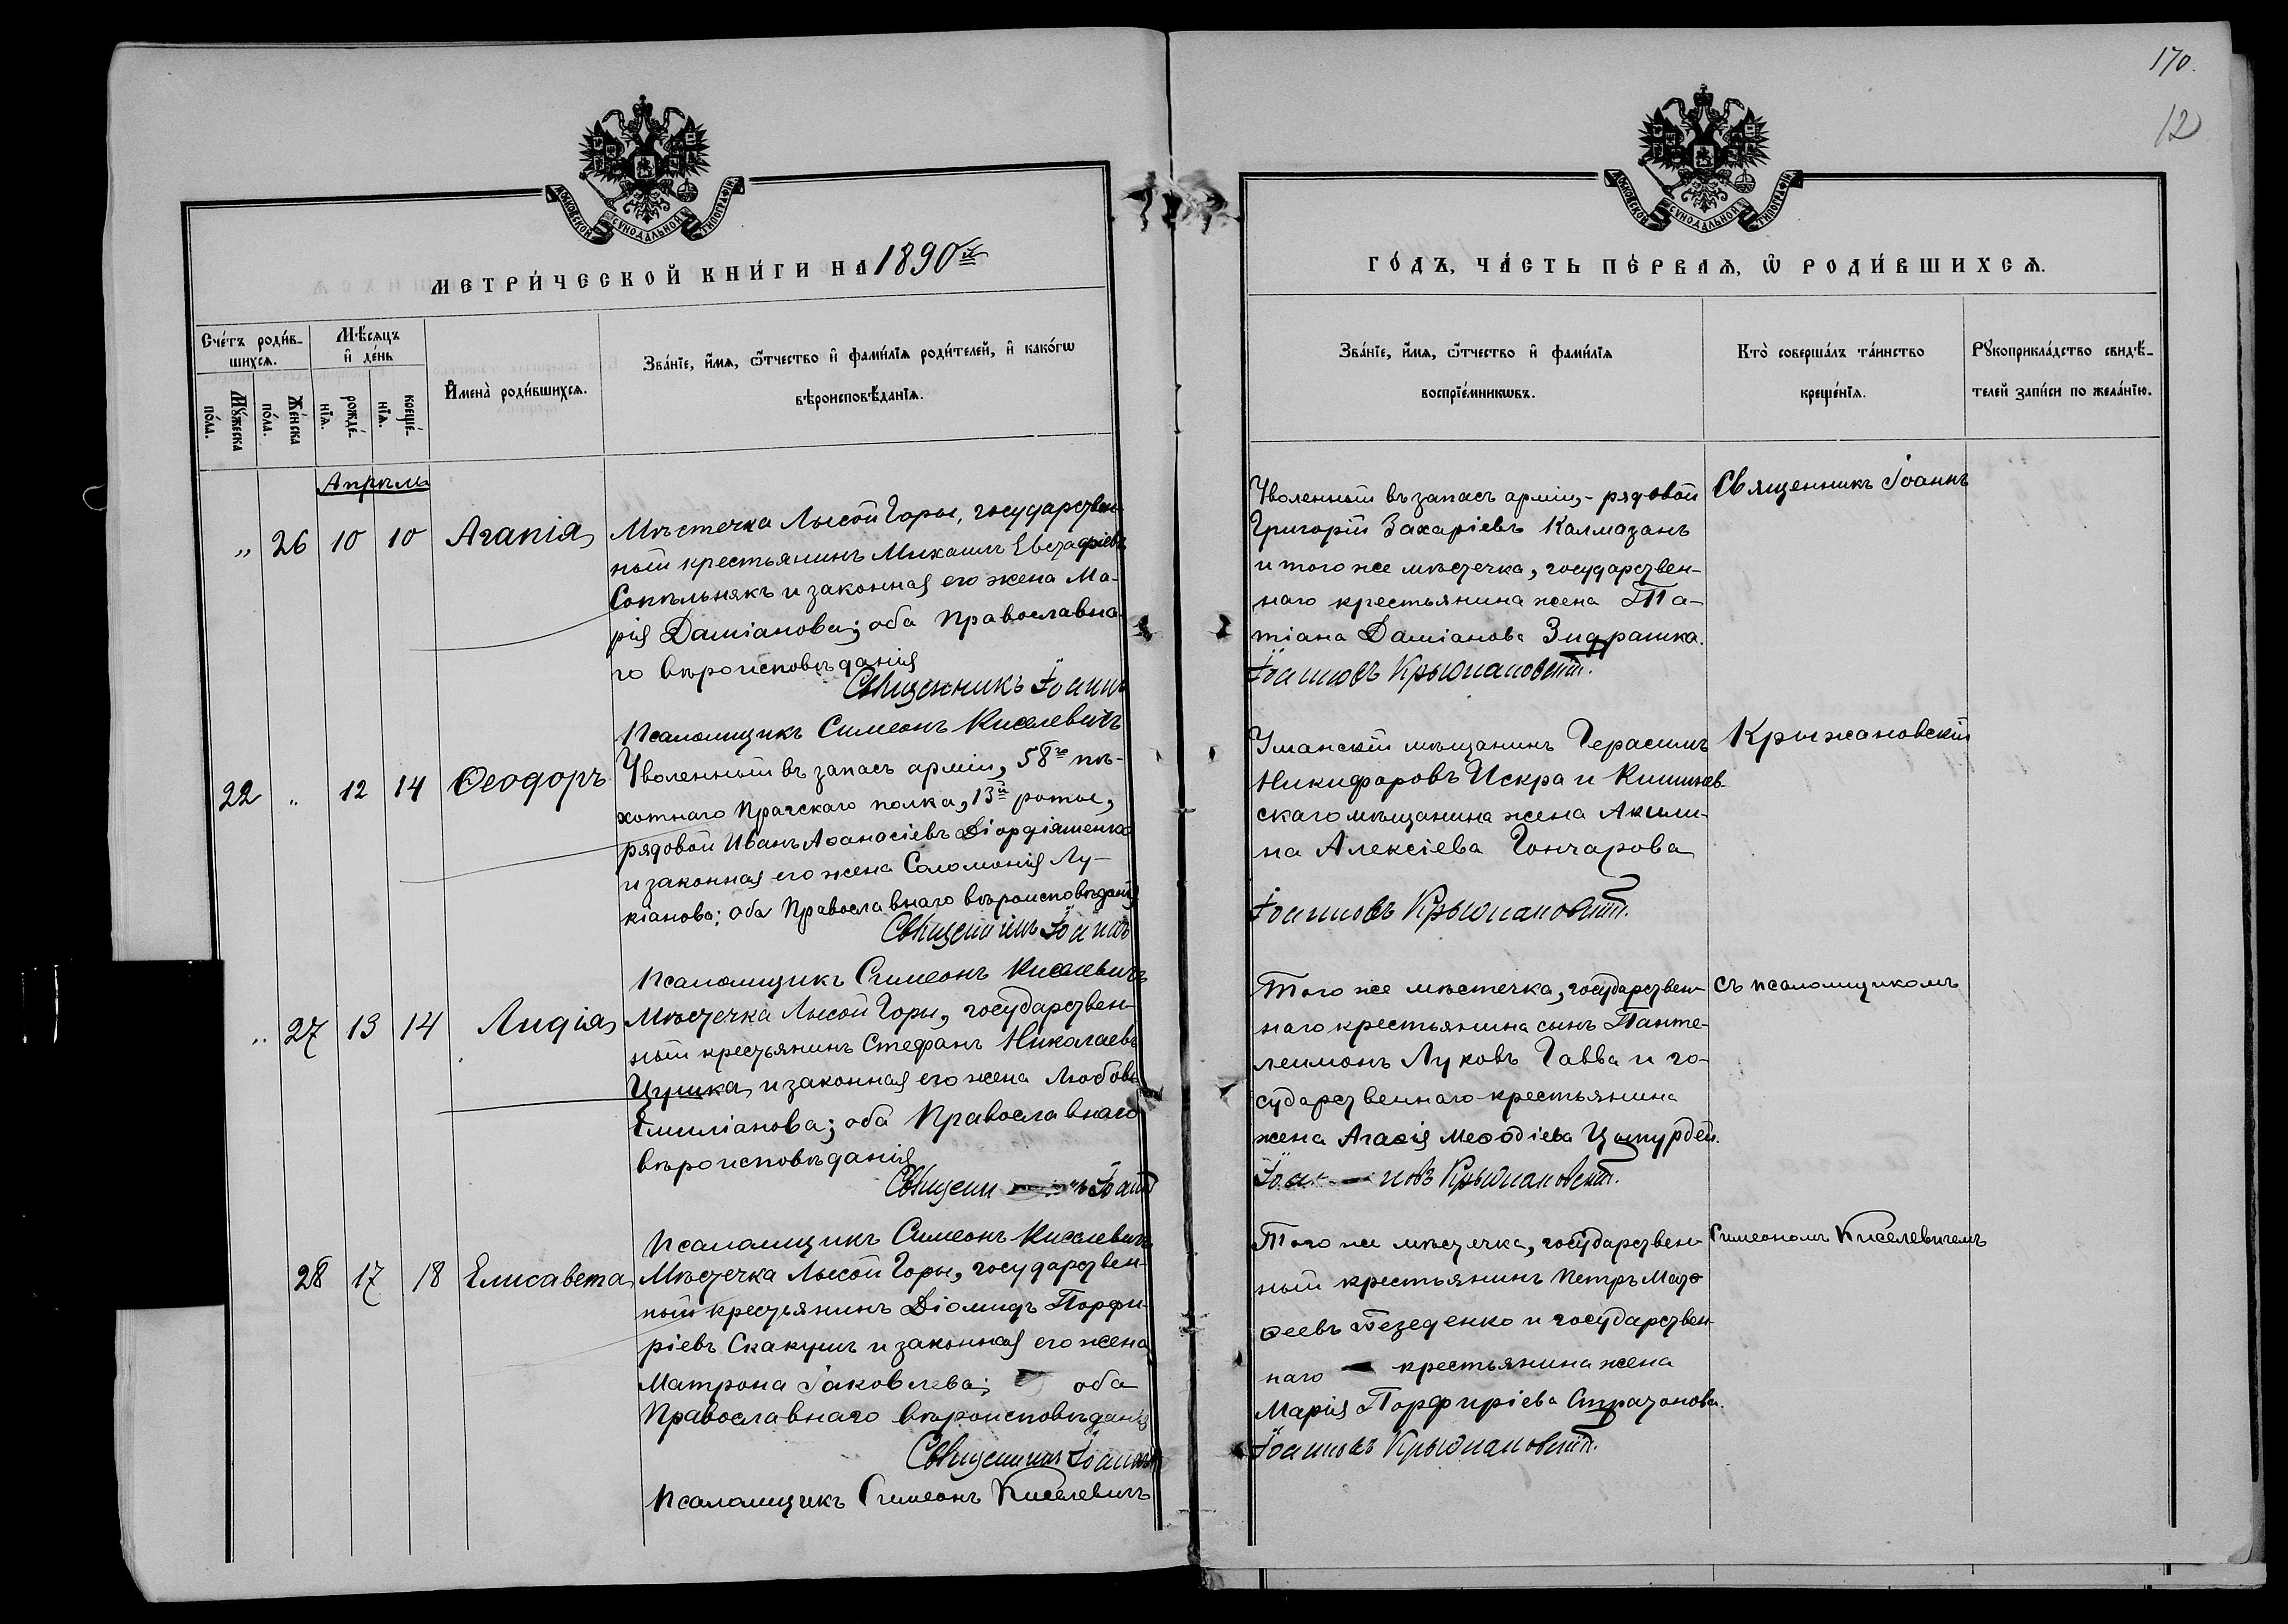 170.
12
МОСКОВСКОЙ СѴНОДАЛЬНОЙ ТИПОГРАФІИ
МЕТРИ́ЧЕСКОЙ КНИ́ГИ НА 1890й
Сче́тъ роди́в-
шихсѧ.
Мѣ́сѧцъ
и҆ де́нь
Мꙋ́жеска
по́ла.
Же́нска
по́ла.
рожде́-
нїѧ.
креще́-
нїѧ.
И҆мена̀ роди́вшихсѧ.
Зва́нїе, и҆́мѧ, ѻ҆́тчество и҆ фами́лїѧ роди́телей, и҆ како́гѡ
вѣроисповѣ́данїѧ.
Апрѣль
„ 26 10 10 Агапія
Мѣстечка Лысой Горы, государствен-
ный крестьянинъ Михаилъ Евстафіевъ
Сопѣльнякъ и законная его жена Ма-
рія Даміанова; оба Православна-
го вѣроисповѣданія
Священникъ Іоаннъ
Псаломщикъ Симеонъ Киселевичъ
22 „ 12 14 Ѳеодоръ
Уволенный въ запасъ арміи, 58го пѣ-
хотнаго Прагскаго полка, 13й роты,
рядовой Иванъ Аѳанасіевъ Діордіященко
и законная его жена Соломонія Лу-
кіанова; оба Православнаго вѣроисповѣданія
Священникъ Іоаннъ
Псаломщикъ Симеонъ Киселевичъ
„ 27 13 14 Лидія
Мѣстечка Лысой Горы, государствен-
ный крестьянинъ Стефанъ Николаевъ
Цушка и законная его жена Любовь
Емиліанова; оба Православнаго
вѣроисповѣданія
Іоаннъ
Псаломщикъ Симеонъ Киселевичъ
28 17 18 Елисавета
Мѣстечка Лысой Горы, государствен-
ный крестьянинъ Діомидъ Порфи-
ріевъ Скакунъ и законная его жена
Матрона Іаковлева; оба
Православнаго вѣроисповѣданія
Священникъ Іоаннъ
Псаломщикъ Симеонъ Киселевичъ
МОСКОВСКОЙ СѴНОДАЛЬНОЙ ТИПОГРАФІИ
ГО́ДЪ, ЧА́СТЬ ПЕ́РВАѦ, Ѡ҆ РОДИ́ВШИХСѦ.
Зва́нїе, и҆́мѧ, ѻ҆́тчество и҆ фами́лїѧ
воспрїе́мникѡвъ.
Кто̀ соверша́лъ та́инство
креще́нїѧ.
Рꙋкоприкла́дство свидѣ́-
телей за́писи по жела́нїю.
Уволенный въ запасъ арміи,- рядовой
Григорій Захаріевъ Калмазанъ
и того же мѣстечка, государствен-
наго крестьянина жена Та-
тіана Даміанова
Іоанновъ Крыжановскій.
Священникъ Іоаннъ
Уманскій мѣщанинъ Герасимъ
Никифоровъ Искра и Кишинев-
скаго мѣщанина жена Акили-
на Алексіева Гончарова
Іоанновъ Крыжановскій.
Крыжановскій
Того же мѣстечка, государствен-
наго крестьянина сынъ Панте-
леимонъ Луковъ Гавва и го-
сударственнаго крестьянина
жена Агаѳія Меѳодіева
Крыжановскій.
съ псаломщикомъ
Того же мѣстечка, государствен-
ный крестьянинъ Петръ Мат-
ѳеевъ и государствен-
наго крестьянина жена
Марія Порфиріева
Іоанновъ Крыжановскій.
Симеономъ Киселевичемъ